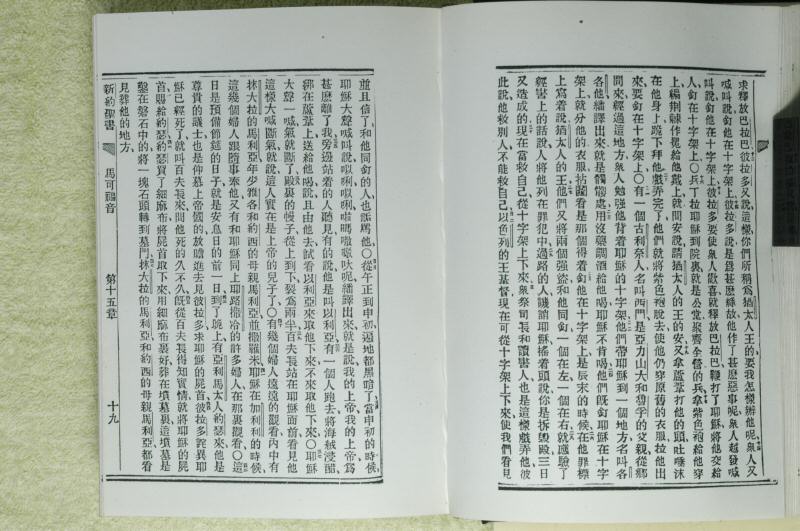 求釋放巴拉巴彼拉多又說這樣你們所稱爲猶太人王的要我怎樣辦他呢衆人又
喊叫說釘他在十字架上彼拉多說是爲甚麽緣故他作了甚麽惡事呢衆人越發喊
叫說釘他在十字架上彼拉多要使衆人歡喜就釋放巴拉巴鞭打了耶穌將他交給
人釘在十字架上○兵丁拉耶穌到院裏就是公堂聚齊全營的兵拿紫色袍給他穿
上編荆棘作冕給他戴上就問安說請猶太人的王的安又拿蘆葦打他的頭吐唾沫
在他身上跪下拜他戲弄完了他們就將紫色袍脫去使他仍穿原舊的衣服拉他出
來要釘在十字架上○有一個古利奈人名叫西門是亞力山大和魯孚的父親從鄉
間來經過這地方衆人勉强他背着耶穌的十字架他們帶耶穌到一個地方名叫各
各他繙譯出來就是髑髏處用沒藥調酒給他喝耶穌不肯喝他們旣釘耶穌在十字
架上就分他的衣服拈鬮看是那個得着釘他在十字架上是辰末的時候在他罪標
上寫着說猶太人的王他們又將兩個强盜和他同釘一個在左一個在右就應驗了
經書上的話說人將他列在罪犯中過路的人譏誚耶穌搖着頭說你是拆毀殿三日
又造成的現在當救自己從十字架上下來衆祭司長和讀書人也是這樣戲弄他彼
此說他救別人不能救自己以色列的王基督現在可從十字架上下來使我們看見
並且信了和他同釘的人也詬罵他○從午正到申初遍地都黑暗了當申初的時候
耶穌大聲喊叫說以羅以羅喇嗎撒吧呢繙譯出來就是說我的上帝我的上帝爲
甚麽離了我旁邊站着的人聽見有的說他是叫以利亞有一個人跑去將海絨浸醋
綁在蘆葦上送給他喝說且由他去試看以利亞來取他下來不來取他下來○耶穌
大聲一喊氣就斷了殿裏的幔子從上到下裂爲兩半百夫長站在耶穌面前看見他
這樣大喊斷氣就說這人實在是上帝的兒子了○有幾個婦人遠遠的觀看內中有
抹大拉的馬利亞年少雅各和約西的母親馬利亞並撒羅米耶穌在加利利的時候
這幾個婦人跟隨事奉他又有和耶穌同上耶路撒冷的許多婦人在那裏觀看○這
日是預備節筵的日子就是安息日的前一日到了晚上有亞利馬太人約瑟來他是
尊貴的議士也是仰慕上帝國的放膽進去見彼拉多求耶穌的屍首彼拉多詫異耶
穌已經死了就叫百夫長來問他死的久不久旣從百夫長得知實情就將耶穌的屍
首賜給約瑟約瑟買了細麻布將屍首取下來用細麻布裹好葬在墳墓裏這墳墓是
鑿在磐石中的將一塊石頭轉到墓門抹大拉的馬利亞和約西的母親馬利亞都看
見葬他的地方
新約聖書 馬可福音 第十五章 十九